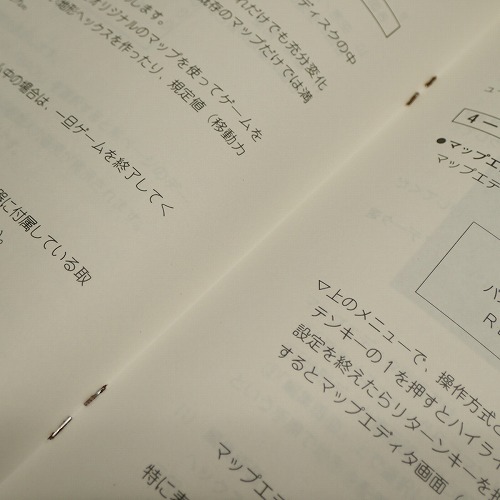 ディスクの中
れだけでも充分変化
既存のマップだけでは満
オリジナルのマップを使ってゲームを
地形ヘックスを作ったり、規定値（移動力
中の場合は、一旦ゲームを終了してく
に付属している取
4
●マップエ
マップエデ
▽上のメニューで、操作方式と
テンキーの１を押すとハイライ
設定を終えたらリターンキーを押
するとマップエディタ画面（
マップエデ
特に